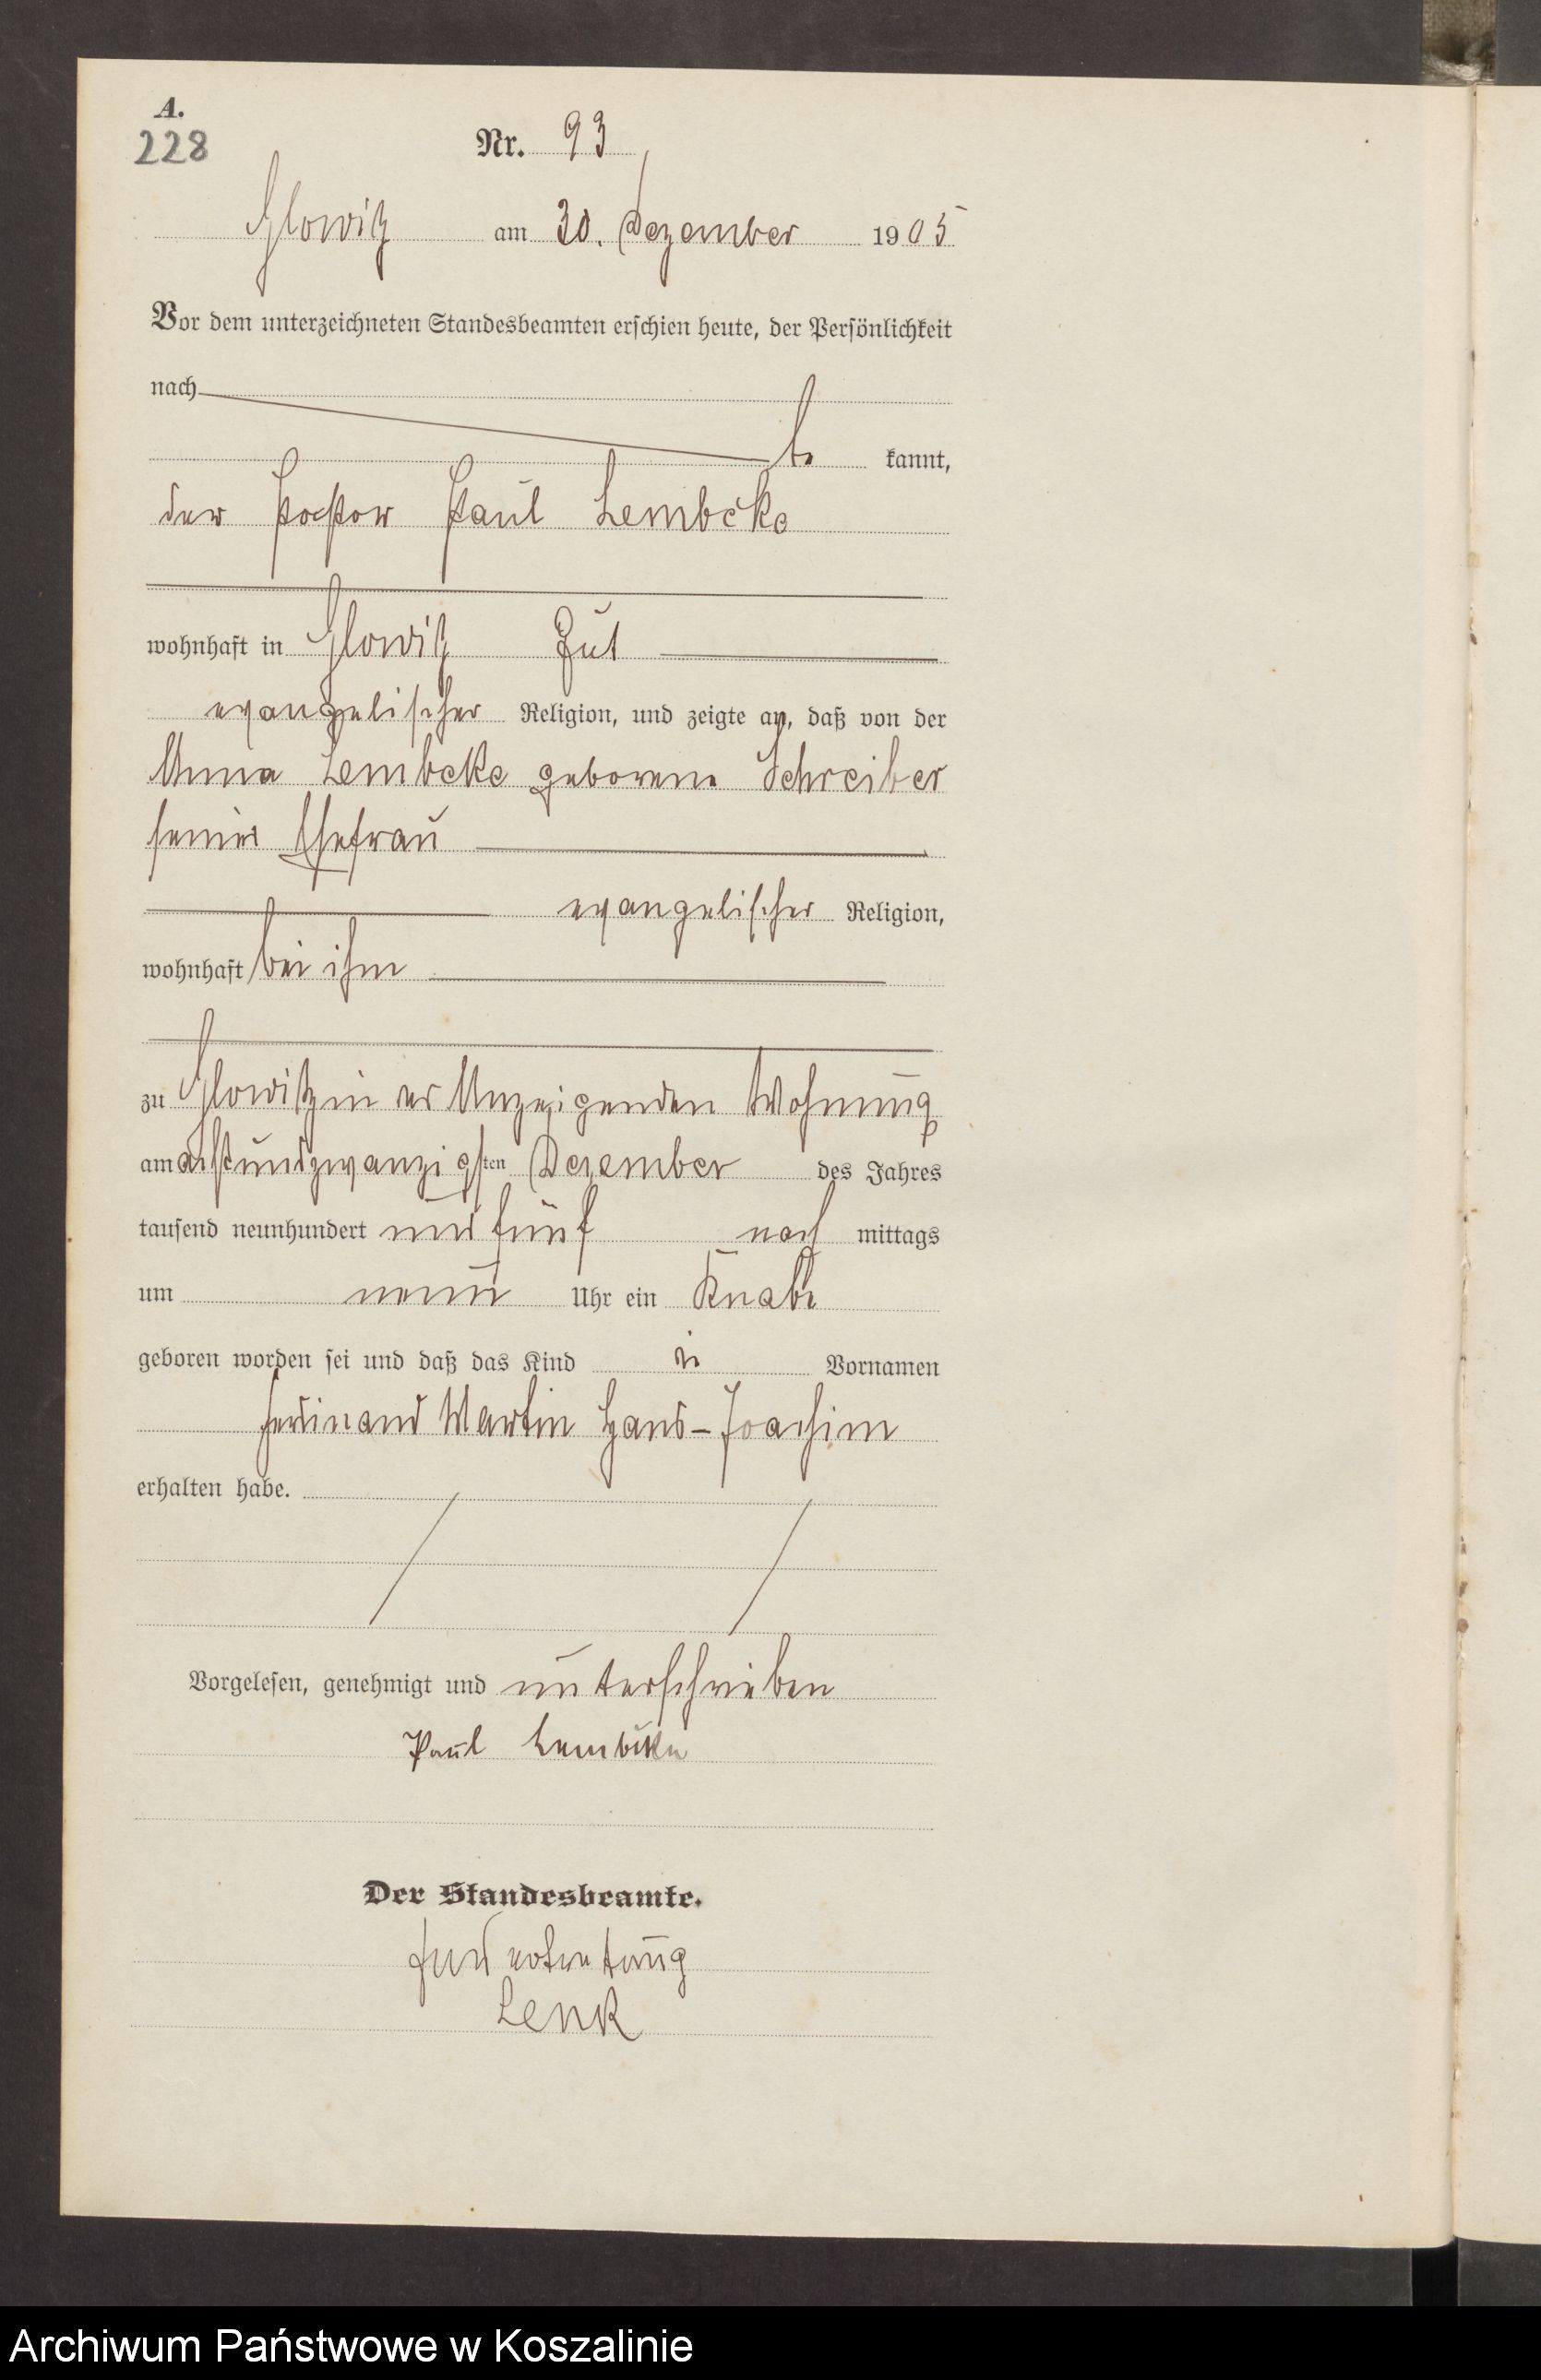 A.
228
Nr. 93
Glowitz am 30. Dezember 1905
Vor dem unterzeichneten Standesbeamten erschien heute, der Persönlichkeit
nach
be kannt,
der Pastor Paul Lembcke
wohnhaft in Glowitz Gut
evangelischer Religion, und zeigte an, daß von der
Anna Lembcke geborene Schreiber
seiner Ehefrau
evangelischer Religion,
wohnhaft bei ihm
zu Glowitz in Anzeigenden Wohnung
am achtundzwanzigsten Dezember des Jahres
tausend neunhundert und fünf nach mittags
um neun Uhr ein Knabe
geboren worden sei und daß das Kind die Vornamen
Ferdinand Martin Hans-Joachim
erhalten habe.
Vorgelesen, genehmigt und unterschrieben
Paul Lembcke
Der Standesbeamte.
In Vertretung
Lenk
Archiwum Państwowe w Koszalinie